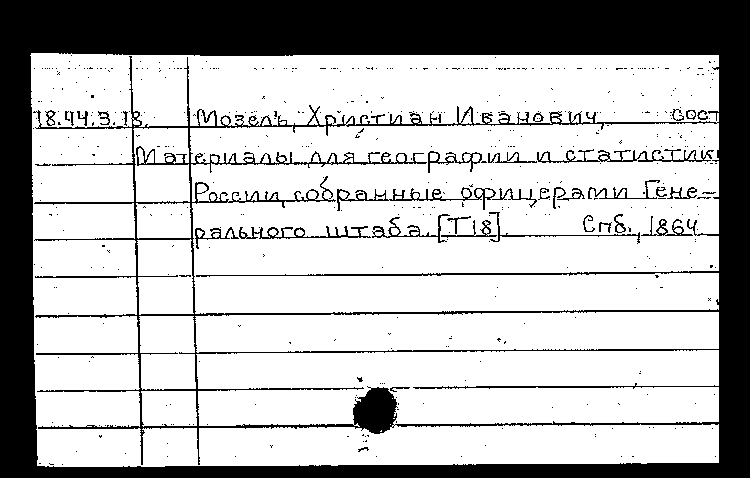 18.44.3.18. Мозель, Христиан Иванович, сост
Материалы для географии и статистик
России, собранные офицерами Гене-
рального штаба. [Т18]. Спб., 1864